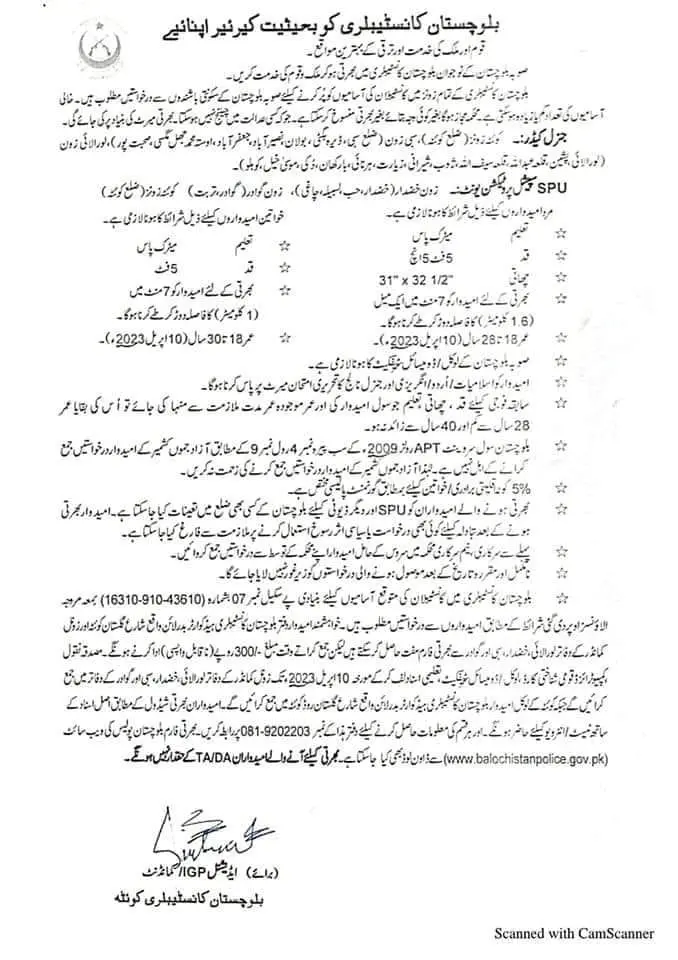 بلوچستان کانسٹیبلری کو بحیثیت کیرئیر اپنائیے
قوم اور ملک کی خدمت اور ترقی کے بہترین مواقع۔
صوبہ بلوچستان کے نوجوان بلوچستان کانسٹیبلری میں بھرتی ہو کر ملک و قوم کی خدمت کریں۔
بلوچستان کانسٹیبلری کے تمام زونز میں کانسٹیبلان کی آسامیوں کو پُر کرنے کیلئے صوبہ بلوچستان کے سکونتی باشندوں سے درخواستیں مطلوب ہیں۔ خالی
آسامیوں کی تعداد کم یا زیادہ ہو سکتی ہے۔ محکمہ مجاز ہوگا بغیر کوئی وجہ بتائے بغیر بھرتی منسوخ کر سکتا ہے۔ جو کہ کسی عدالت میں چیلنج نہیں ہو سکتا۔ بھرتی میرٹ کی بنیاد پر کی جائے گی۔
جنرل کیڈر:۔ کوئٹہ زونز (ضلع کوئٹہ)، سبی زون (ضلع سبی، ڈیرہ بگٹی، بولان، نصیر آباد، جعفر آباد، اوستہ محمد، جھل مگسی، صحبت پور)، لورالائی زون
(لورالائی، پشین، قلعہ عبداللہ، قلعہ سیف اللہ، ژوب، شیرانی، زیارت، ہرنائی، بارکھان، دُکی، موسیٰ خیل، کوہلو)۔
SPU سپیشل پروٹیکشن یونٹ:۔ زون خضدار (خضدار، حب، لسبیلہ، چاغی)، زون گوادر (گوادر، تربت) کوئٹہ زونز (ضلع کوئٹہ)
مرد امیدواروں کیلئے ذیل شرائط کا ہونا لازمی ہے۔ خواتین امیدواروں کیلئے ذیل شرائط کا ہونا لازمی ہے۔
☆ تعلیم میٹرک پاس ☆ تعلیم میٹرک پاس
☆ قد 5 فٹ 5 انچ ☆ قد 5 فٹ
☆ چھاتی 31" x 32 1/2"
☆ بھرتی کے لئے امیدوار کو 7 منٹ میں ایک میل ☆ بھرتی کے لئے امیدوار کو 7 منٹ میں
(1.6 کلومیٹر) کا فاصلہ دوڑ کر طے کرنا ہوگا۔ (1 کلومیٹر) کا فاصلہ دوڑ کر طے کرنا ہوگا۔
☆ عمر 18 تا 28 سال (10 اپریل 2023ء)۔ ☆ عمر 18 تا 30 سال (10 اپریل 2023ء)۔
☆ صوبہ بلوچستان کے لوکل/ڈومیسائل سرٹیفکیٹ کا ہونا لازمی ہے۔
☆ امیدوار کو اسلامیات/اُردو/انگریزی اور جنرل نالج کا تحریری امتحان میرٹ پر پاس کرنا ہوگا۔
☆ سابقہ فوجی کیلئے قد، چھاتی، تعلیم جو سول امیدوار کی اور عمر موجودہ عمر مدت ملازمت سے منہا کی جائے تو اُس کی بقایا عمر
28 سال سے کم اور 40 سال سے زائد نہ ہو۔
☆ بلوچستان سول سرونٹ APT رولز 2009ء کے سب پیرہ نمبر 4 رول نمبر 9 کے مطابق آزاد جموں کشمیر کے امیدوار درخواستیں جمع
کرانے کے اہل نہیں ہے۔ لہٰذا آزاد جموں کشمیر کے امیدوار درخواستیں جمع کرنے کی زحمت نہ کریں۔
☆ 5% کوٹہ اقلیتی برادری/خواتین کیلئے بمطابق گورنمنٹ پالیسی مختص ہے۔
☆ بھرتی ہونے والے امیدواران کو SPU اور دیگر ڈیوٹی کیلئے بلوچستان کے کسی بھی ضلع میں تعینات کیا جا سکتا ہے۔ امیدوار بھرتی
ہونے کے بعد تبادلہ کیلئے کوئی بھی درخواست یا سیاسی اثر رسوخ استعمال کرنے پر ملازمت سے فارغ کیا جا سکتا ہے۔
☆ پہلے سے سرکاری/نیم سرکاری محکمہ میں سروس کے حامل امیدوار اپنے محکمہ کے توسط سے درخواستیں جمع کروائیں۔
☆ نامکمل اور مقررہ تاریخ کے بعد موصول ہونے والی درخواستوں کو زیر غور نہیں لایا جائے گا۔
☆ بلوچستان کانسٹیبلری میں کانسٹیبلان کی متوقع آسامیوں کیلئے بنیادی پے سکیل نمبر 07 بشمارہ (43610-910-16310) بمعہ مروجہ
الاؤنسز اوپر دی گئی شرائط کے مطابق امیدواروں سے درخواستیں مطلوب ہیں۔ خواہشمند امیدوار دفتر بلوچستان کانسٹیبلری ہیڈ کوارٹر بدر لائن واقع شارع گلستان کوئٹہ اور زونل
کمانڈر کے دفاتر لورالائی، خضدار، سبی اور گوادر سے بھرتی فارم مفت حاصل کر سکتے ہیں لیکن جمع کراتے وقت مبلغ -/300 روپے (ناقابل واپسی) ادا کرنے ہونگے۔ مصدقہ نقول
کمپیوٹرائزڈ قومی شناختی کارڈ، لوکل/ڈومیسائل سرٹیفکیٹ، تعلیمی اسناد لف کر کے مورخہ 10 اپریل 2023 تک زونل کمانڈر کے دفاتر لورالائی، خضدار، سبی اور گوادر کے دفاتر میں جمع
کرائیں گے جبکہ کوئٹہ کے لوکل امیدوار بلوچستان کانسٹیبلری ہیڈ کوارٹر بدر لائن واقع شارع گلستان روڈ کوئٹہ میں جمع کرائیں گے۔ امیدواران بھرتی شیڈول کے مطابق اصل اسناد کے
ساتھ ٹیسٹ/انٹرویو کیلئے حاضر ہونگے۔ اور ہر قسم کی معلومات حاصل کرنے کیلئے دفتر ہذا کے نمبر 081-9202203 پر رابطہ کریں۔ بھرتی فارم بلوچستان پولیس کی ویب سائٹ
(www.balochistanpolice.gov.pk) سے ڈاون لوڈ بھی کیا جا سکتا ہے۔ بھرتی کیلئے آنے والے امیدواران TA/DA کے حقدار نہیں ہونگے۔
(برائے) ایڈیشنل IGP/کمانڈنٹ
بلوچستان کانسٹیبلری کوئٹہ
Scanned with CamScanner